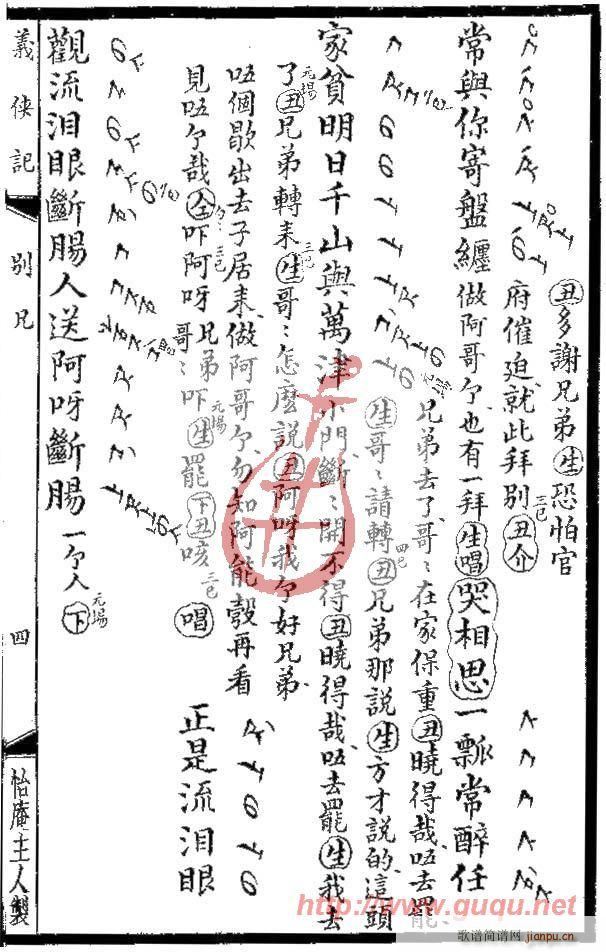 丑多謝兄弟生恐怕官
府催迫就此拜別三巳丑介
常與你寄盤纏做阿哥个也有一拜生唱哭相思一瓢常醉任
兄弟去了哥〻在家保重丑曉得哉唔去罷
生哥〻請轉四巳丑兄弟那說生方才說的這頭
家貧明日千山與萬津小門斷〻開不得丑曉得哉唔去罷生我去
了元場丑兄弟轉來三巳生哥〻怎麼說丑阿呀我个好兄弟
唔個歇出去子居來做阿哥个勿知阿能彀再看
見唔个哉仝吓阿呀兄弟哥〻吓元場生罷下丑咳三巳唱 正是流泪眼
觀流泪眼斷腸人送阿呀斷腸一个人元場下
義俠記 別兄 四 怡庵主人製
http://www.guqu.net
歌谱简谱网
jianpu.cn